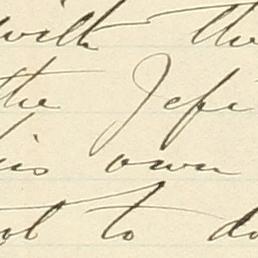 with the
the Jeffe
his own
not to do